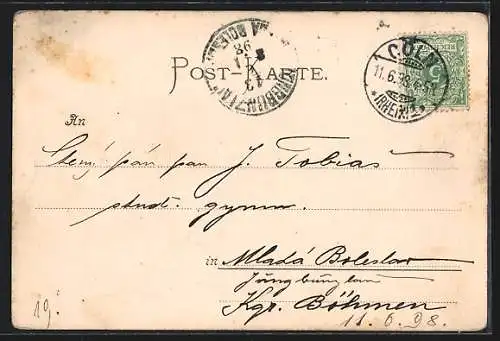 CÖLN
11.6.98
*(RHEIN)*
98
13
JUNGBUNZLAU
POST-KARTE.
An
Ctěný pán pan J. Tobiáš
stud. gymn.
in Mladá Boleslav
Jungbunzlau
Kgr. Böhmen
19.
11.6.98.